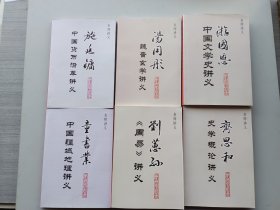 名师讲义
施廷镛
中国货币沿革讲义
名师讲义
汤用彤
魏晋玄学讲义
名师讲义
游国恩
中国文学史讲义
名师讲义
童书业
中国疆域地理讲义
名师讲义
刘蕙孙
《周易》讲义
名师讲义
齐思和
史学概论讲义